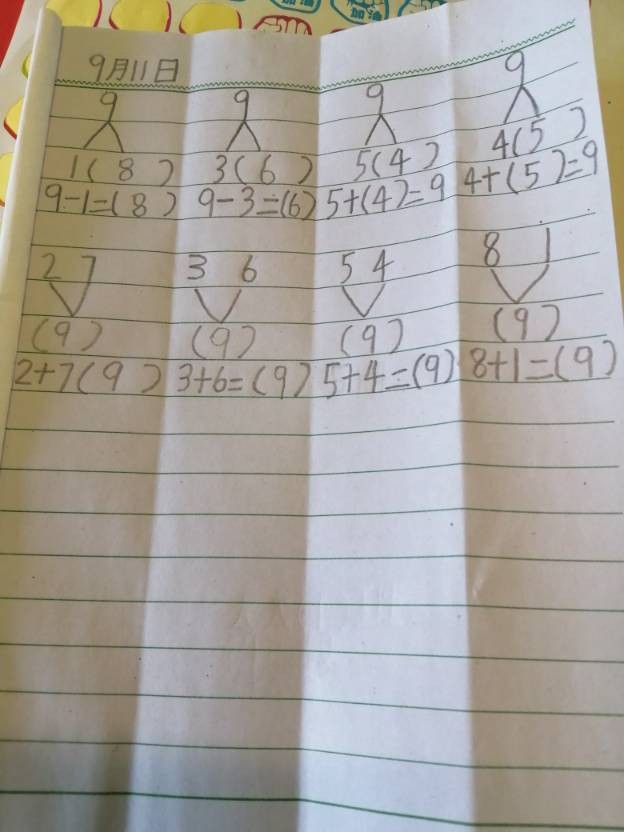 9月11日
9 9 9 9
1(8) 3(6) 5(4) 4(5)
9-1=(8) 9-3=(6) 5+(4)=9 4+(5)=9
2 7 3 6 5 4 8 1
(9) (9) (9) (9)
2+7(9) 3+6=(9) 5+4=(9) 8+1=(9)